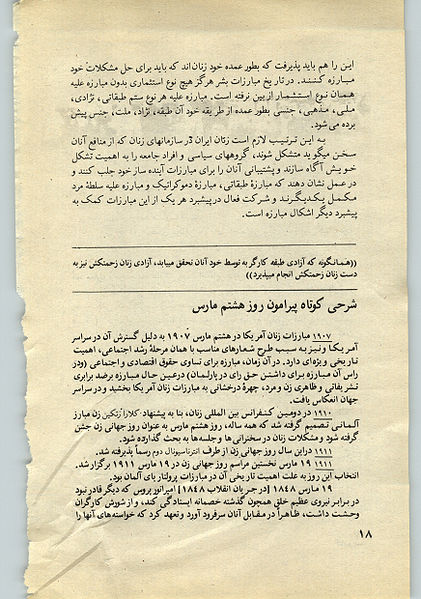 این را هم باید پذیرفت که بطور عمده خود زنان‌اند که باید برای حل مشکلات خود
مبارزه کنند. در تاریخ مبارزات بشر هرگز هیچ نوع استثماری بدون مبارزه علیه
همان نوع استثمار از بین نرفته است. مبارزه علیه هر نوع ستم طبقاتی، نژادی،
ملی، مذهبی، جنسی بطور عمده از طریق خود آن طبقه، نژاد، ملت، جنس پیش
برده می‌شود.
به این ترتیب لازم است زنان ایران در سازمانهای زنان که از منافع آنان
سخن میگوید متشکل شوند، گروههای سیاسی و افراد جامعه را به اهمیت تشکل
خویش آگاه سازند و پشتیبانی آنان را برای مبارزات آینده ساز خود جلب کنند و
در عمل نشان دهند که مبارزهٔ طبقاتی، مبارزهٔ دموکراتیک و مبارزه علیه سلطهٔ مرد
مکمل یکدیگرند و شرکت فعال در پیشبرد هر یک از این مبارزات کمک به
پیشبرد دیگر اشکال مبارزه است.
((همانگونه که آزادی طبقه کارگر به توسط خود آنان تحقق مییابد، آزادی زنان زحمتکش نیز به
دست زنان زحمتکش انجام میپذیرد))
شرحی کوتاه پیرامون روز هشتم مارس
۱۹۰۷ مبارزات زنان آمریکا در هشتم مارس ۱۹۰۷ به دلیل گسترش آن در سراسر
آمریکا و نیز به سبب طرح شعارهای مناسب با همان مرحلهٔ رشد اجتماعی، اهمیت
تاریخی ویژه‌ای دارد. در آن زمان، مبارزه برای تساوی حقوق اقتصادی و اجتماعی (و در
راس آن مبارزه برای داشتن حق رای در پارلمان) در عین حال مبارزه بر ضد برابری
نشریفاتی و ظاهری زن و مرد، چهرهٔ درخشانی به مبارزات زنان آمریکا بخشید و در سراسر
جهان انعکاس یافت.
۱۹۱۰ در دومین کنفرانس بین المللی زنان، بنا به پیشنهاد کلارا زتکین زن مبارز
آلمانی تصمیم گرفته شد که همه ساله، روز هشتم مارس به عنوان روز جهانی زن جشن
گرفته شود و مشکلات زنان در سخنرانی ها و جلسه‌ها به بحث گذارده شود.
۱۹۱۱ در این سال روز جهانی زن از طرف انترناسیونال دوم رسماً پذیرفته شد.
۱۹۱۱ ۱۹ مارس نخستین مراسم روز جهانی زن در ۱۹ مارس ۱۹۱۱ برگزار شد.
انتخاب این روز به علت اهمیت تاریخی آن در مبارزات پرولتاریای آلمان بود.
۱۹ مارس ۱۸۴۸ [در جریان انقلاب ۱۸۴۸] امپراتور پروس که دیگر قادر نبود
در برابر نیروی عظیم خلق همچون گذشته خصمانه ایستادگی کند، و از شورش کارگران
وحشت داشت، ظاهراً در مقابل آنان سر فرود آورد و تعهد کرد که خواسته‌های آنها را
۱۸